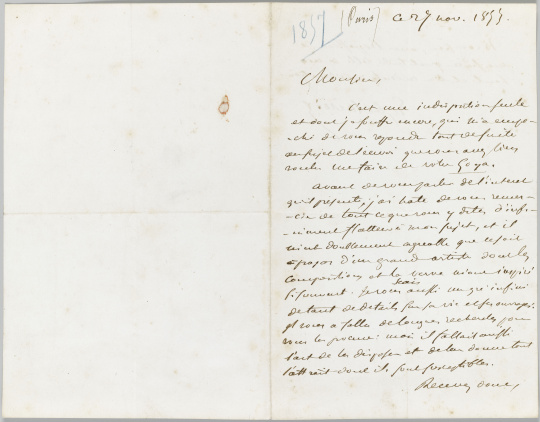 1857 (Paris) ce 27 nov. 1855.
Monsieur,
C'est une indisposition seule
et dont je souffre encore, qui m'a empê-
-ché de vous répondre tout de suite
au sujet de l'envoi que vous avez bien
voulu me faire de votre Goya.
Avant de vous parler de l'intérêt
qu'il présente, j'ai hâte de vous remer-
-cier de tout ce que vous y dites d'infi-
-niment flatteur à mon sujet, et il
m'est doublement agréable que ce soit
à propos d'un grand artiste dont les
compositions et la verve m'ont inspiré
si souvent. Je vous sais aussi un gré infini
de tant de détails sur sa vie et ses ouvrages.
Il vous a fallu de longues recherches pour
vous les procurer: mais il fallait aussi
l'art de les disposer et de leur donner tout
l'attrait dont ils sont susceptibles.
Recevez donc,